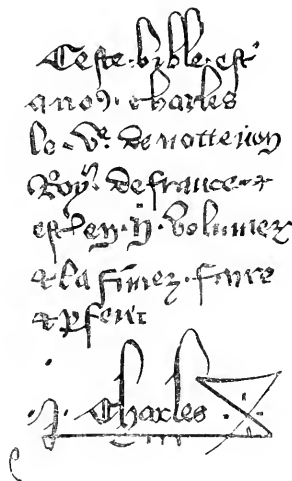 Ceste bible est
a no9 Charles
le Ve de notte non
Roy de france et
est en ii volumez
et la fimez faire
et pfeire
Charles